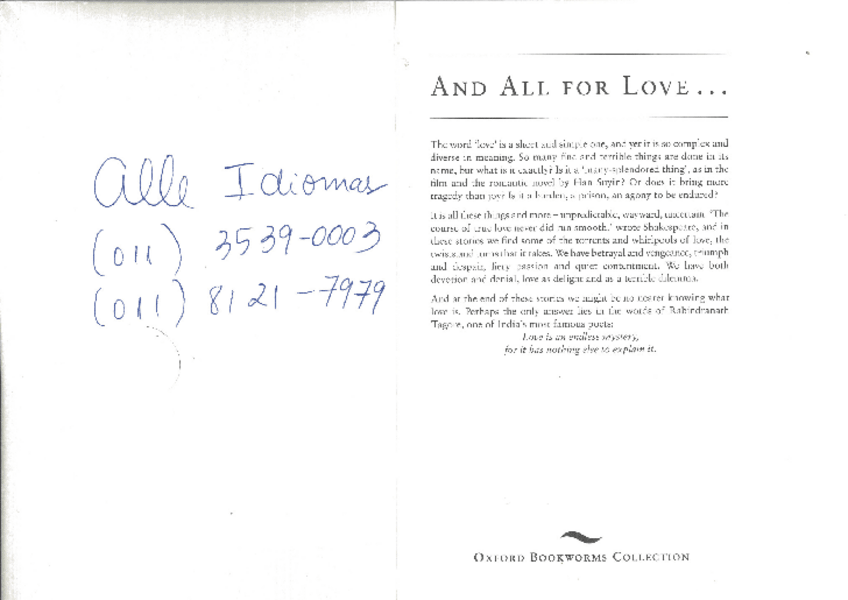 Alle Idiomas
(011) 3539-0003
(011) 8121-7979
AND ALL FOR LOVE...
The word 'love' is a short and simple one, and yet it is so complex and
diverse in meaning. So many fine and terrible things are done in its
name, but what is it exactly? Is it a 'many-splendored thing', as in the
film and the romantic novel by Han Suyin? Or does it bring more
tragedy than joy? Is it a burden, a prison, an agony to be endured?
It is all these things and more – unpredictable, wayward, uncertain. 'The
course of true love never did run smooth,' wrote Shakespeare, and in
these stories we find some of the torrents and whirlpools of love, the
twists and turns that it takes. We have betrayal and vengeance, triumph
and despair, fiery passion and quiet contentment. We have both
devotion and denial, love as delight and as a terrible dilemma.
And at the end of these stories we might be no nearer knowing what
love is. Perhaps the only answer lies in the words of Rabindranath
Tagore, one of India's most famous poets:
Love is an endless mystery,
for it has nothing else to explain it.
OXFORD BOOKWORMS COLLECTION